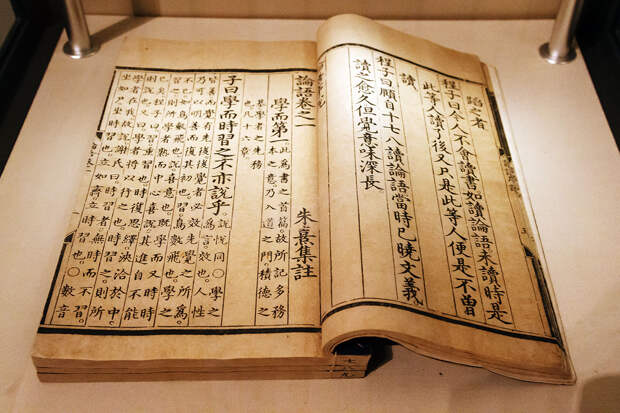 蹈之者
程子曰今人不會讀書如讀論語未讀時是
此等人讀了後又只是此等人便是不曾
讀
程子曰頤自十七八讀論語當時已曉文義
讀之愈久但覺意味深長
論語卷之一
朱熹集註
學而第一
此爲書之首篇。故所記多務
本之意。乃入道之門。積德之
基。學者之先務
也。凡十六章
子曰學而時習之不亦說乎。
說悅同○學之
爲言效也。人性
皆善而覺有先後後覺者必效先覺之所爲。
乃可以明善而復其初也。習鳥數飛也。學之
不已如鳥數飛也。說喜意也旣學而又時時
習之則所學者熟而中心喜說其進自不能
已矣程子曰習重習也時復思繹浹洽於中。
則說也又曰學者將以行之也時習之則所
學者在我故說謝氏曰時習者無時而不習。
坐如尸坐時習也立如齊立時習也。○數音